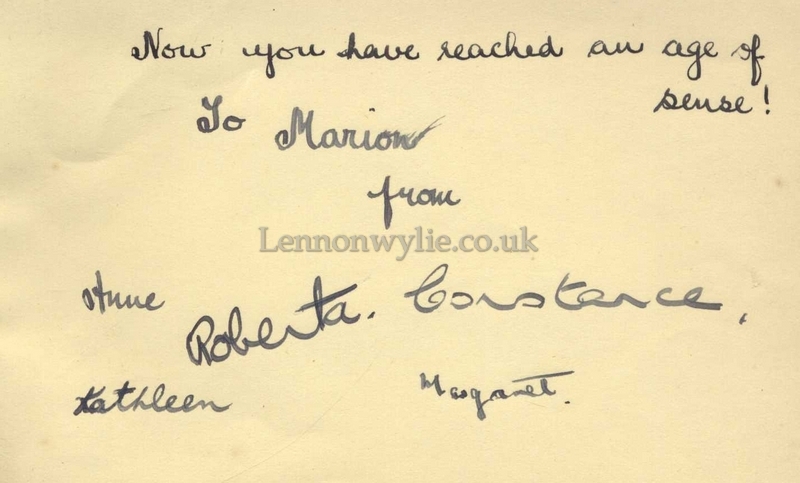 Now you have reached an age of
sense!
To Marion
from
Lennonwylie.co.uk
Anne
Roberta. Constance,
Kathleen
Margaret.